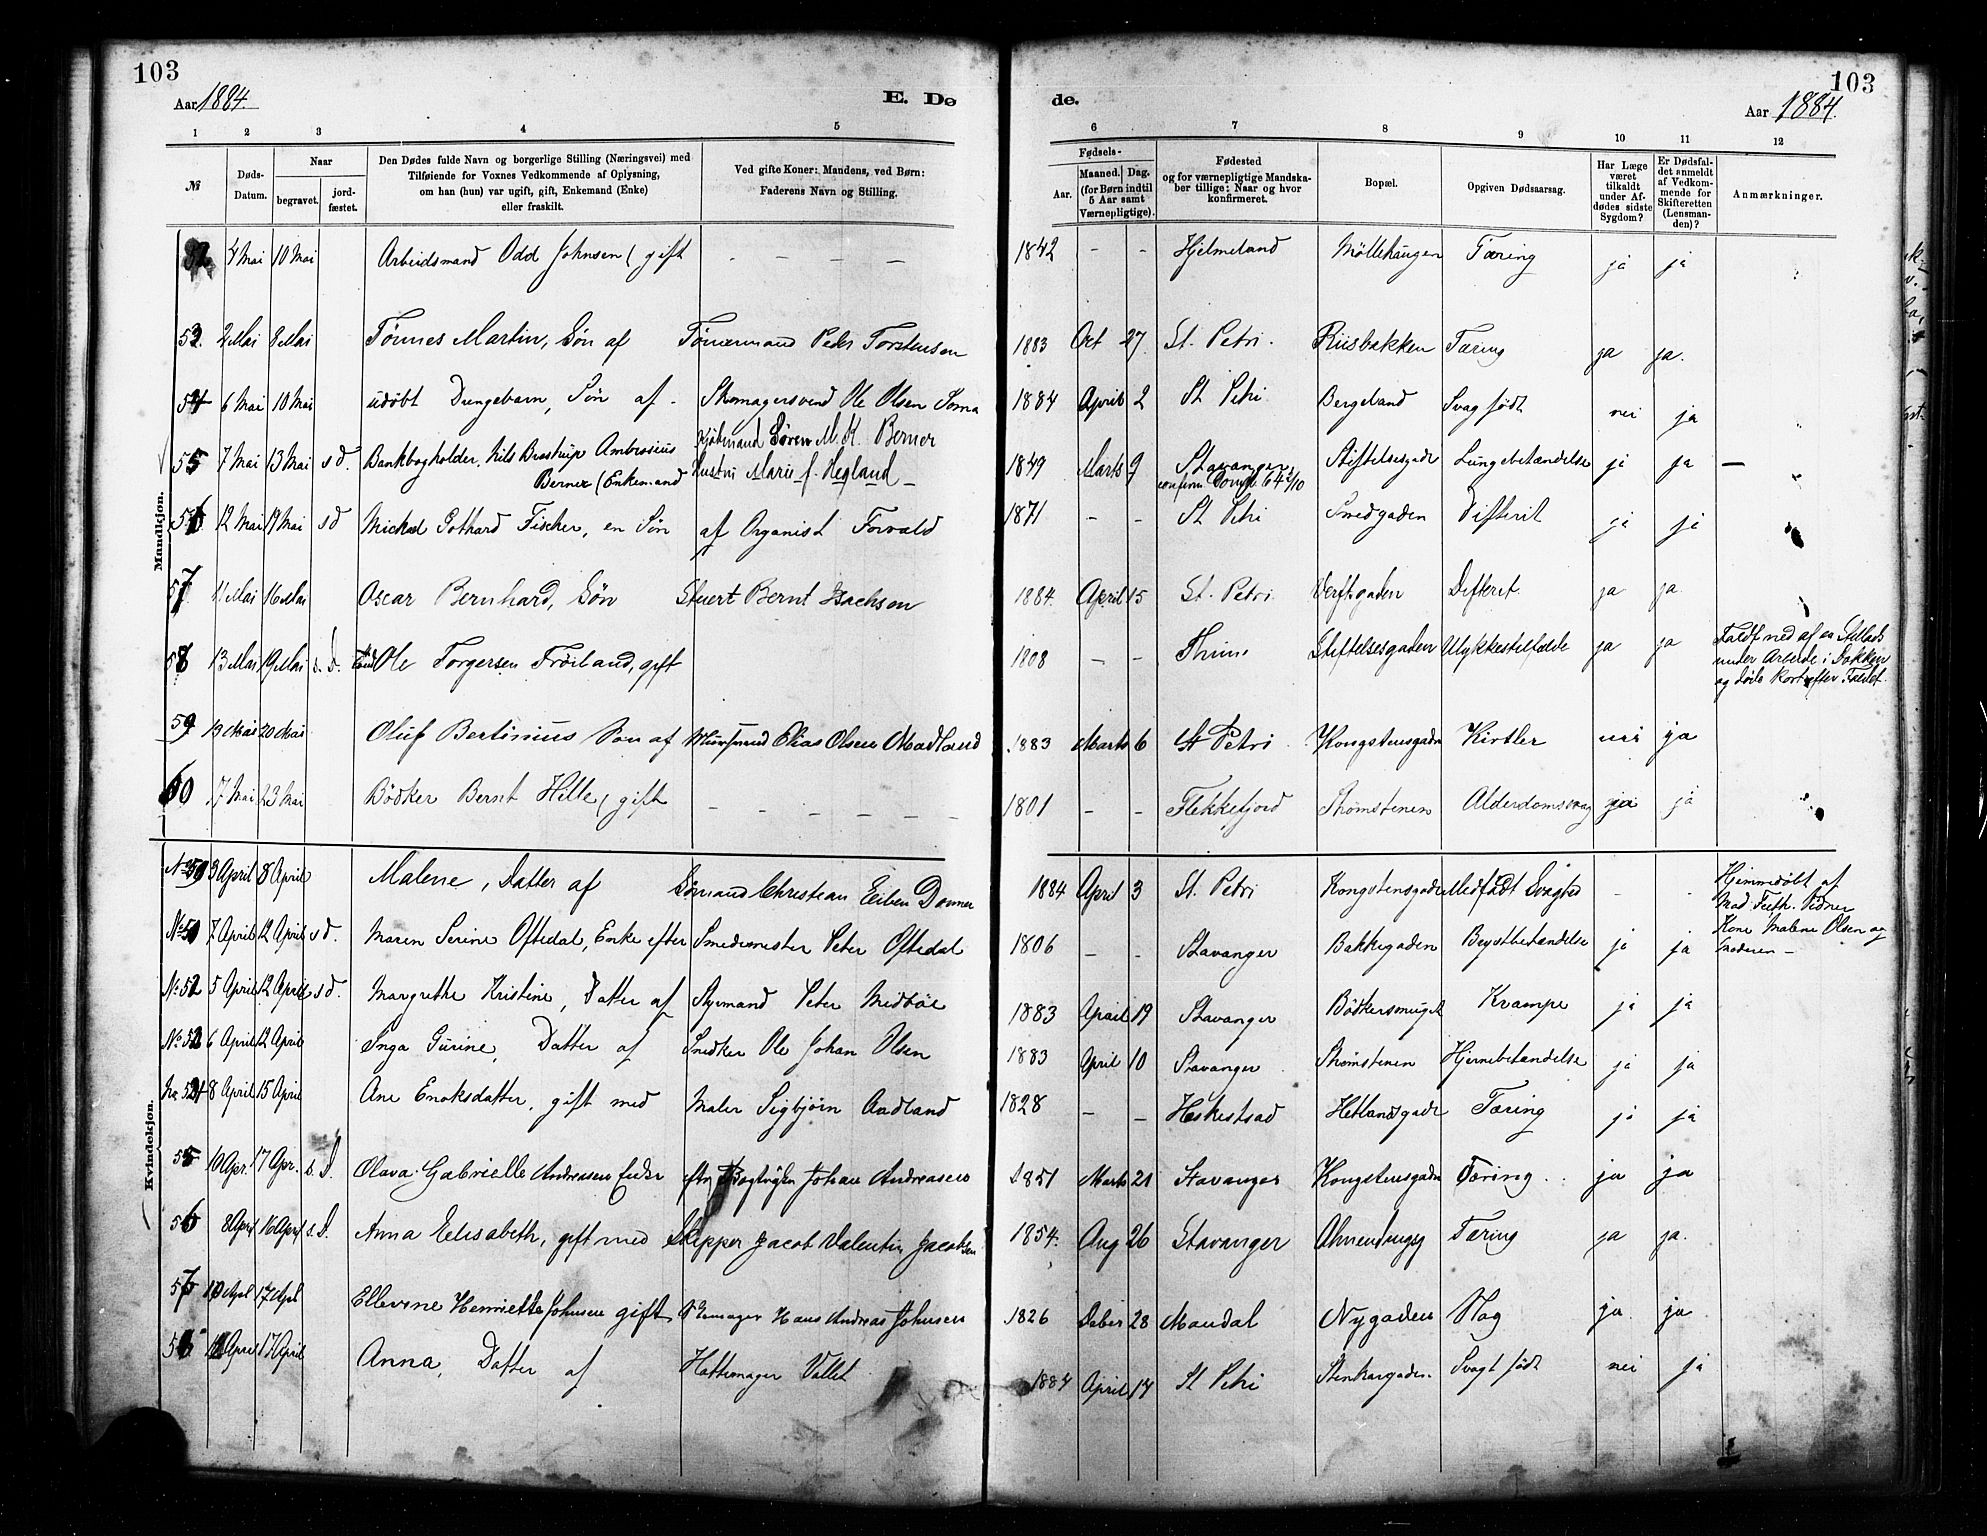 103
103
Aar 1884.
E. Dø
de.
Aar 1884.
1 2 3 4 5 6 7 8 9 10 11 12
№
Døds-Datum.
Naar
begravet.
jord-fæstet.
Den Dødes fulde Navn og borgerlige Stilling (Næringsvei) med
Tilføiende for Voxnes Vedkommende af Oplysning,
om han (hun) var ugift, gift, Enkemand (Enke)
eller fraskilt.
Ved gifte Koner: Mandens, ved Børn:
Faderens Navn og Stilling.
Fødsels-
Aar.
Maaned. Dag.
(for Børn indtil
5 Aar samt
Værnepligtige).
Fødested
og for værnepligtige Mandska-
ber tillige: Naar og hvor
konfirmeret.
Bopæl.
Opgiven Dødsaarsag.
Har Læge
været
tilkaldt
under Af-
dødes sidste
Sygdom?
Er Dødsfal-
det anmeldt
af Vedkom-
mende for
Skifteretten
(Lensman-
den)?
Anmærkninger.
Mandkjøn.
4 Mai 10 Mai Arbeidsmand Odd Johnsen, gift — — — — 1842 – – Hjelmeland Möllehaugen Tæring ja ja
53. 2 Mai 8 Mai Tønnes Martin, Søn af Tømermand Peder Torstensen 1883 Oct 27 St. Petri. Riisbakken Tæring ja ja.
54 6 Mai 10 Mai udøbt Drengebarn, Søn af Skomagersvend Ole Olsen Soma 1884 April 2 St Petri Bergeland Svag født nei ja
55 7 Mai 13 Mai s d. Bankbogholder, Nils Brostrup Ambrosius Kjøbmand Søren M. K. Berner 1849 Marts 9 Stavanger Stiftelsesgade Lungebetændelse ja ja —
Berner (Enkemand Hustru Marie f. Hegland –
56 12 Mai 17 Mai s d Mickal Gothard Fischer, en Søn af Organist Torvald 1871 – – St Petri Smedgaden Difterit ja ja
57 11 Mai 16 Mai Oscar Bernhard, Søn Stuert Bernt Isachsen 1884. April 15 St. Petri Verftsgaden Defterit. ja ja.
58 13 Mai 19 Mai s. d. Ole Torgersen Frøiland, gift 1808 – – Thime Stiftelsesgaden Ulykkestilfælde ja ja Faldt ned af en Stillads
under Arbeide i Bakken
og døde kort efter Faldet.
59 13 Mai 20 Mai Oluf Bertinius Søn af Murmand Elias Olsen Madland 1883 Marts 6 St Petri Kongstensgadn Kirtler nei ja
60 17 Mai 23 Mai Bødker Bernt Hille, gift — — — — — — 1801 – – Flekkefjord Strømstenen Alderdomssvag ja ja
Kvindekjøn.
3 April 8 April Malene, Datter af Sømand Christian Eiben Donner 1884 April 3 St. Petri Kongstensgade Medfødt Svaghed – – Hjemmedøbt af
Kone Malene Olsen og
Moderen –
7 April 12 April s d. Maren Serine Oftedal, Enke efter Smedemester Peter Oftedal 1806 – – Stavanger Bakkegaden Brystbetændelse ja ja
No 52 5 April 12 April s d. Margrethe Kristine, Datter af Styrmand Peter Medbøe 1883 April 19 Stavanger Bødkersmuget Krampe ja ja
No 53 6 April 12 April Inga Gurine, Datter af Snedker Ole Johan Olsen 1883 April 10 Stavanger Strømstenen Hjernebetændelse ja ja
No 54 8 April 15 April Ane Enoksdatter, gift med Maler Sigbjørn Aadland 1828 – – Heskestad Hetlandsgade Tæring ja ja
55 10 Apr. 17 Apr. s. d. Olava Gabrielle Andreasen Enke eftr Johan Andreasen 1851 Marts 21 Stavanger Kongstensgadn Tæring. ja ja
56 8 April 16 April s. d. Anna Elisabeth, gift med Skipper Jacob Valentin Jacobsen 1854. Aug 26 Stavanger Tæring ja ja.
57 17 Apl Ellevine Henriette Johnsen gift Skomager Hans Andreas Johnsen 1826 Deber 28 Mandal Nygaden Slag ja. ja.
17 April Anna, Datter af Hattemager Vallet 1884 April 14 St Petri Stenkargaden. Svagt født nei ja